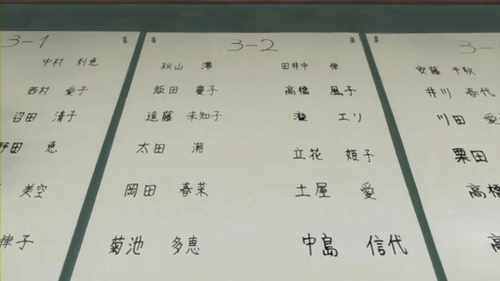 3-1
中村
西村 愛子
沼田 清子
野田 恵
美空
律子
3-2
秋山 澪
飯田 慶子
遠藤 未知子
太田 潮
岡田 春菜
菊池 多恵
田井中 律
高橋 風子
瀧 エリ
立花 姫子
土屋 愛
中島 信代
3-
安藤 千秋
井川 春代
川田 愛
栗田
高橋
高